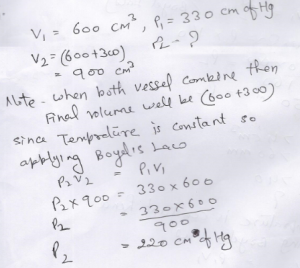 V₁ = 600 cm³, P₁ = 330 cm of Hg
V₂ = (600+300) P₂ - ?
= 900 cm³
Note - when both vessel combine then
Final volume well be (600+300)
since Temprature is constant so
applying Boyd's Law
P₂V₂ = P₁V₁
P₂ × 900 = 330 × 600
P₂ = 330×600 / 900
P₂ = 220 cm of Hg